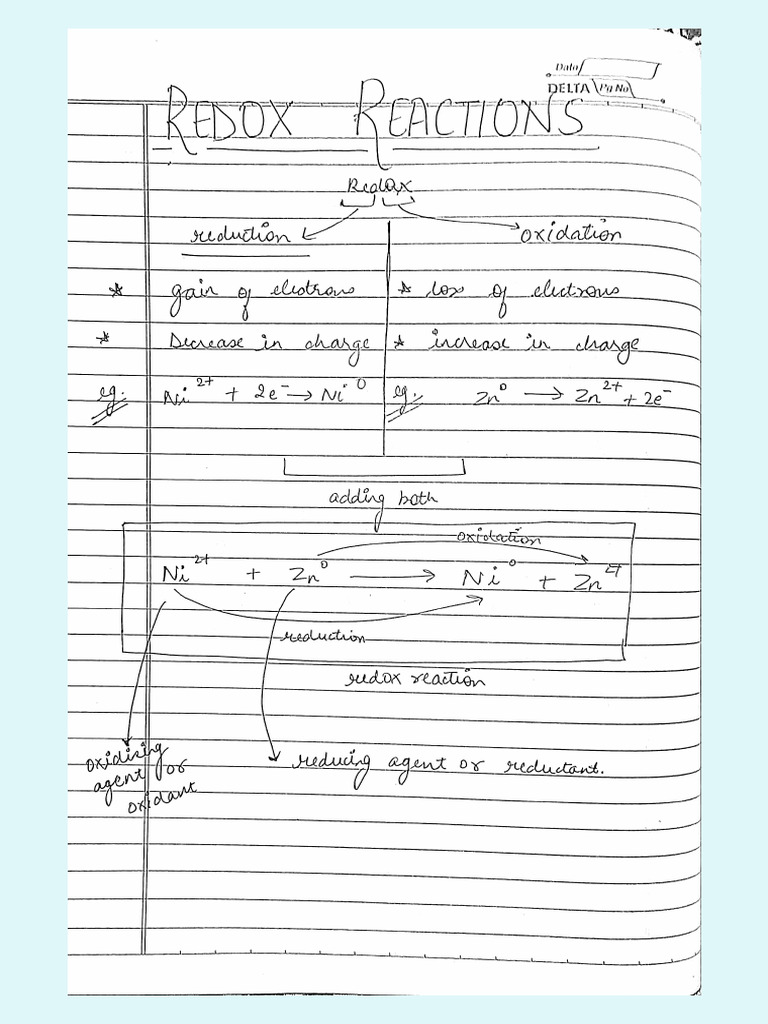 Date
DELTA Pg No
REDOX REACTIONS
Redox
reduction
oxidation
* gain of electrons
* loss of electrons
* Decrease in charge
* increase in charge
eg. Ni²⁺ + 2e⁻ → Ni⁰
eg. Zn⁰ → Zn²⁺ + 2e⁻
adding both
oxidation
Ni²⁺ + Zn⁰ → Ni⁰ + Zn²⁺
reduction
redox reaction
oxidising
agent or
oxidant
reducing agent or reductant.